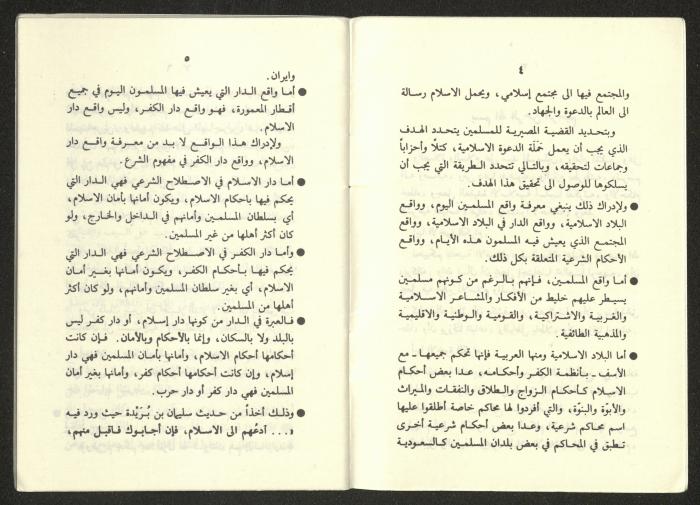 ٤
والمجتمع فيها الى مجتمع إسلامي، ويحمل الاسلام رسالة
الى العالم بالدعوة والجهاد.
وبتحديد القضية المصيرية للمسلمين يتحدد الهدف
الذي يجب أن يعمل حَمَلة الدعوة الاسلامية، كتلًا وأحزاباً
وجماعات لتحقيقه، وبالتالي تتحدد الطريقة التي يجب أن
يسلكوها للوصول الى تحقيق هذا الهدف.
● ولإدراك ذلك ينبغي معرفة واقع المسلمين اليوم، وواقع
البلاد الاسلامية، وواقع الدار في البلاد الاسلامية، وواقع
المجتمع الذي يعيش فيه المسلمون هذه الأيام، وواقع
الأحكام الشرعية المتعلقة بكل ذلك.
● أما واقع المسلمين، فإنهم بالرغم من كونهم مسلمين
يسيطر عليهم خليط من الأفكار والمشاعر الاسلامية
والغربية والاشتراكية، والقومية والوطنية والاقليمية
والمذهبية الطائفية.
● أما البلاد الاسلامية ومنها العربية فإنها تحكم جميعها ـ مع
الأسف ـ بأنظمة الكفر وأحكامه، عدا بعض أحكام
الاسلام كأحكام الزواج والطلاق والنفقات والميراث
والأبوّة والبنوّة، والتي أفردوا لها محاكم خاصة أطلقوا عليها
اسم محاكم شرعية، وعدا بعض أحكام شرعية أخرى
تطبق في المحاكم في بعض بلدان المسلمين كالسعودية
٥
وايران.
● أما واقع الدار التي يعيش فيها المسلمون اليوم في جميع
أقطار المعمورة، فهو واقع دار الكفر، وليس واقع دار
الاسلام.
ولإدراك هذا الواقع لا بد من معرفة واقع دار
الاسلام، وواقع دار الكفر في مفهوم الشرع.
● أما دار الاسلام في الاصطلاح الشرعي فهي الدار التي
يحكم فيها باحكام الاسلام، ويكون أمانها بأمان الاسلام،
أي بسلطان المسلمين وأمانهم في الداخل والخارج، ولو
كان أكثر أهلها من غير المسلمين.
● وأما دار الكفر في الاصطلاح الشرعي فهي الدار التي
يحكم فيها بأحكام الكفر، ويكون أمانها بغير أمان
الاسلام، أي بغير سلطان المسلمين وأمانهم، ولو كان أكثر
أهلها من المسلمين.
● فالعبرة في الدار من كونها دار إسلام، أو دار كفر ليس
بالبلد ولا بالسكان، وإنما بالأحكام وبالأمان. فإن كانت
أحكامها أحكام الاسلام، وأمانها بأمان المسلمين فهي دار
إسلام، وإن كانت أحكامها أحكام كفر، وأمانها بغير أمان
المسلمين فهي دار كفر أو دار حرب.
● وذلك أخذاً من حديث سليمان بن بُرَيْدة حيث ورد فيه
«... ادعُهم الى الاسلام، فإن أجابوك فاقبل منهم،